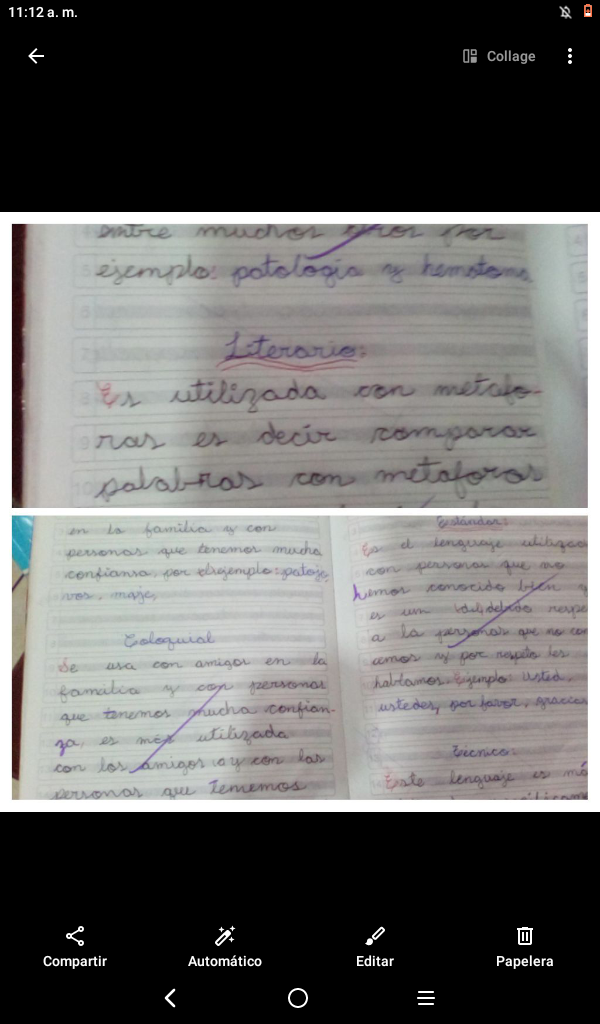 11:12 a. m.
Collage
entre muchos otros por
ejemplo: patología y hematoma
Literario:
Es utilizada con metafo-
ras es decir comparar
palabras con metaforas
en la familia y con
personas que tenemos mucha
confiansa, por ejemplo: patojo,
vos, maje,
Coloquial
Se usa con amigos en la
familia y con personas
que tenemos mucha confian-
za, es más utilizada
con los amigos y con las
personas que tenemos
Estándar:
Es el lenguaje
con personas que no
hemos conocido bien y
es un
a la personas que no con
amos y por respeto les
hablamos. Ejemplo: usted,
ustedes, por favor, gracias
Técnico:
Este lenguaje es má
Compartir
Automático
Editar
Papelera